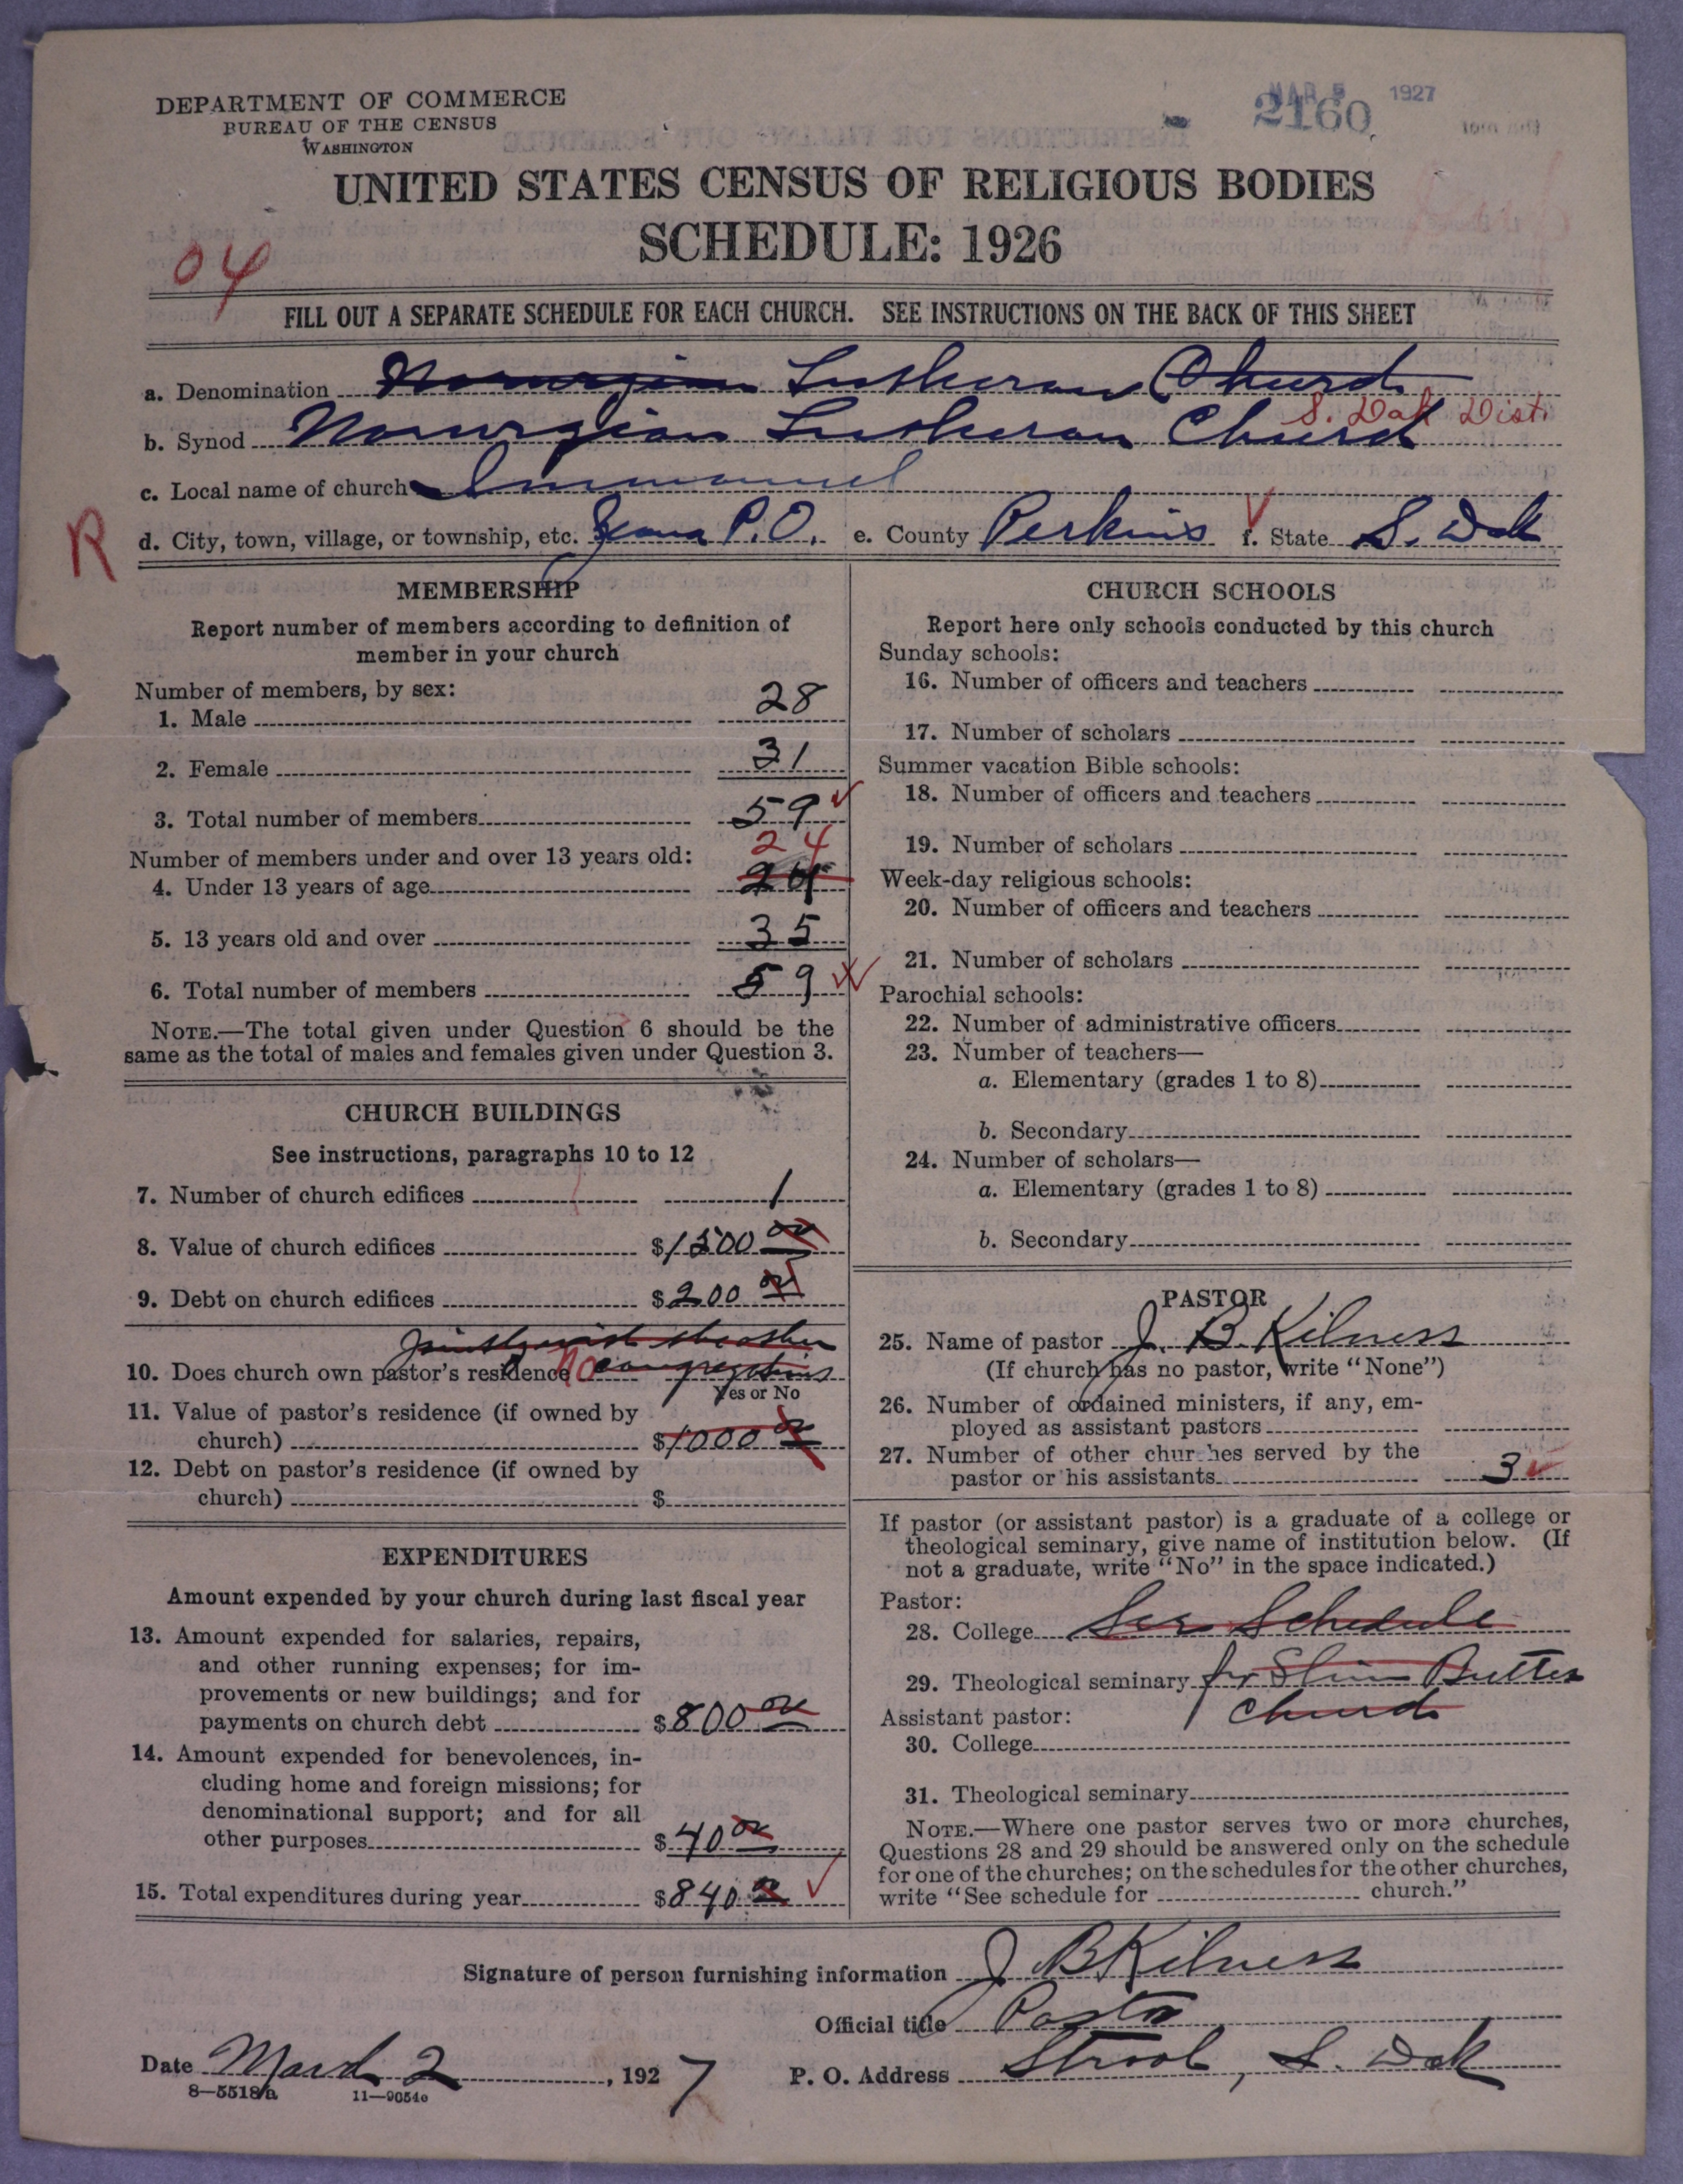 DEPARTMENT OF COMMERCE
BUREAU OF THE CENSUS
WASHINGTON
MAR 5 1927
2160
UNITED STATES CENSUS OF RELIGIOUS BODIES
SCHEDULE: 1926
04
FILL OUT A SEPARATE SCHEDULE FOR EACH CHURCH. SEE INSTRUCTIONS ON THE BACK OF THIS SHEET
a. Denomination Norwegian Lutheran Church
S. Dak Dist.
b. Synod Norwegian Lutheran Church
c. Local name of church Immanuel
R
d. City, town, village, or township, etc. P.O. e. County Perkins f. State S. Dak
MEMBERSHIP
Report number of members according to definition of
member in your church
Number of members, by sex:
1. Male 28
2. Female 31
3. Total number of members 59
Number of members under and over 13 years old: 24
4. Under 13 years of age 24
5. 13 years old and over 35
6. Total number of members 59
NOTE.—The total given under Question 6 should be the
same as the total of males and females given under Question 3.
CHURCH BUILDINGS
See instructions, paragraphs 10 to 12
7. Number of church edifices 1
8. Value of church edifices $1500 00
9. Debt on church edifices $200 00
jointly with the other
10. Does church own pastor's residence No congregations
Yes or No
11. Value of pastor's residence (if owned by
church) $1000 00
12. Debt on pastor's residence (if owned by
church) $
EXPENDITURES
Amount expended by your church during last fiscal year
13. Amount expended for salaries, repairs,
and other running expenses; for im-
provements or new buildings; and for
payments on church debt $800 00
14. Amount expended for benevolences, in-
cluding home and foreign missions; for
denominational support; and for all
other purposes $40 00
15. Total expenditures during year $840 00
CHURCH SCHOOLS
Report here only schools conducted by this church
Sunday schools:
16. Number of officers and teachers
17. Number of scholars
Summer vacation Bible schools:
18. Number of officers and teachers
19. Number of scholars
Week-day religious schools:
20. Number of officers and teachers
21. Number of scholars
Parochial schools:
22. Number of administrative officers
23. Number of teachers—
a. Elementary (grades 1 to 8)
b. Secondary
24. Number of scholars—
a. Elementary (grades 1 to 8)
b. Secondary
PASTOR
25. Name of pastor J. B. Kilness
(If church has no pastor, write "None")
26. Number of ordained ministers, if any, em-
ployed as assistant pastors
27. Number of other churches served by the
pastor or his assistants 3
If pastor (or assistant pastor) is a graduate of a college or
theological seminary, give name of institution below. (If
not a graduate, write "No" in the space indicated.)
Pastor:
28. College See Schedule
29. Theological seminary for Slim Buttes
Assistant pastor: Church
30. College
31. Theological seminary
NOTE.—Where one pastor serves two or more churches,
Questions 28 and 29 should be answered only on the schedule
for one of the churches; on the schedules for the other churches,
write "See schedule for church."
Signature of person furnishing information J B Kilness
Official title Pastor
Date March 2, 1927 P. O. Address Strool, S. Dak
8—5518a 11—9054a